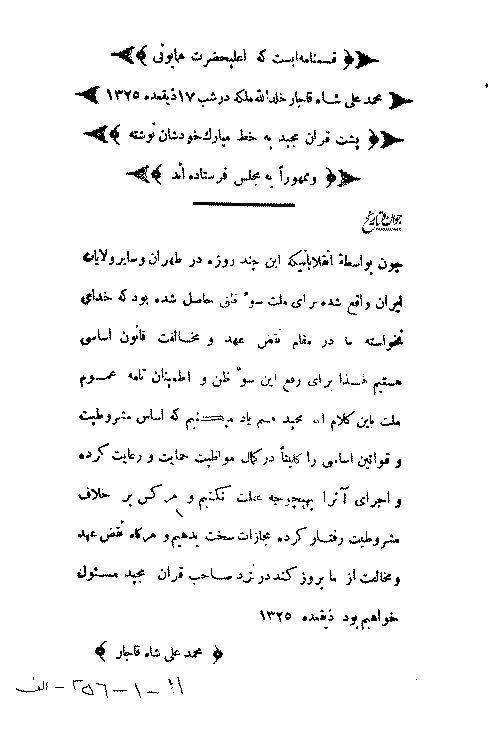 قسمنامه‌ایست که اعلیحضرت همایونی
محمد علی شاه قاجار خلدالله ملکه در شب ۱۷ ذیقعده ۱۳۲۵
پشت قران مجید به خط مبارك خودشان نوشته
وممهوراً به مجلس فرستاده اند
چون بواسطهٔ انقلاباتیکه این چند روزه در طهران و سایر ولایات
ایران واقع شده برای ملت سوء ظنی حاصل شده بود که خدای
نخواسته ما در مقام نقض عهد و مخالفت قانون اساسی
هستیم لهذا برای رفع این سوء ظن و اطمینان تامه عموم
ملت باین کلام الله مجید قسم یاد میکنیم که اساس مشروطیت
و قوانین اساسی را کلیتاً در کمال مواظبت حمایت و رعایت کرده
و اجرای آنرا بهیچوجه غفلت نکنیم و هر کس بر خلاف
مشروطیت رفتار کرده مجازات سخت بدهیم و هرگاه نقض عهد
و مخالفت از ما بروز کند در نزد صاحب قران مجید مسئول
خواهیم بود ذیقعده ۱۳۲۵
محمد علی شاه قاجار